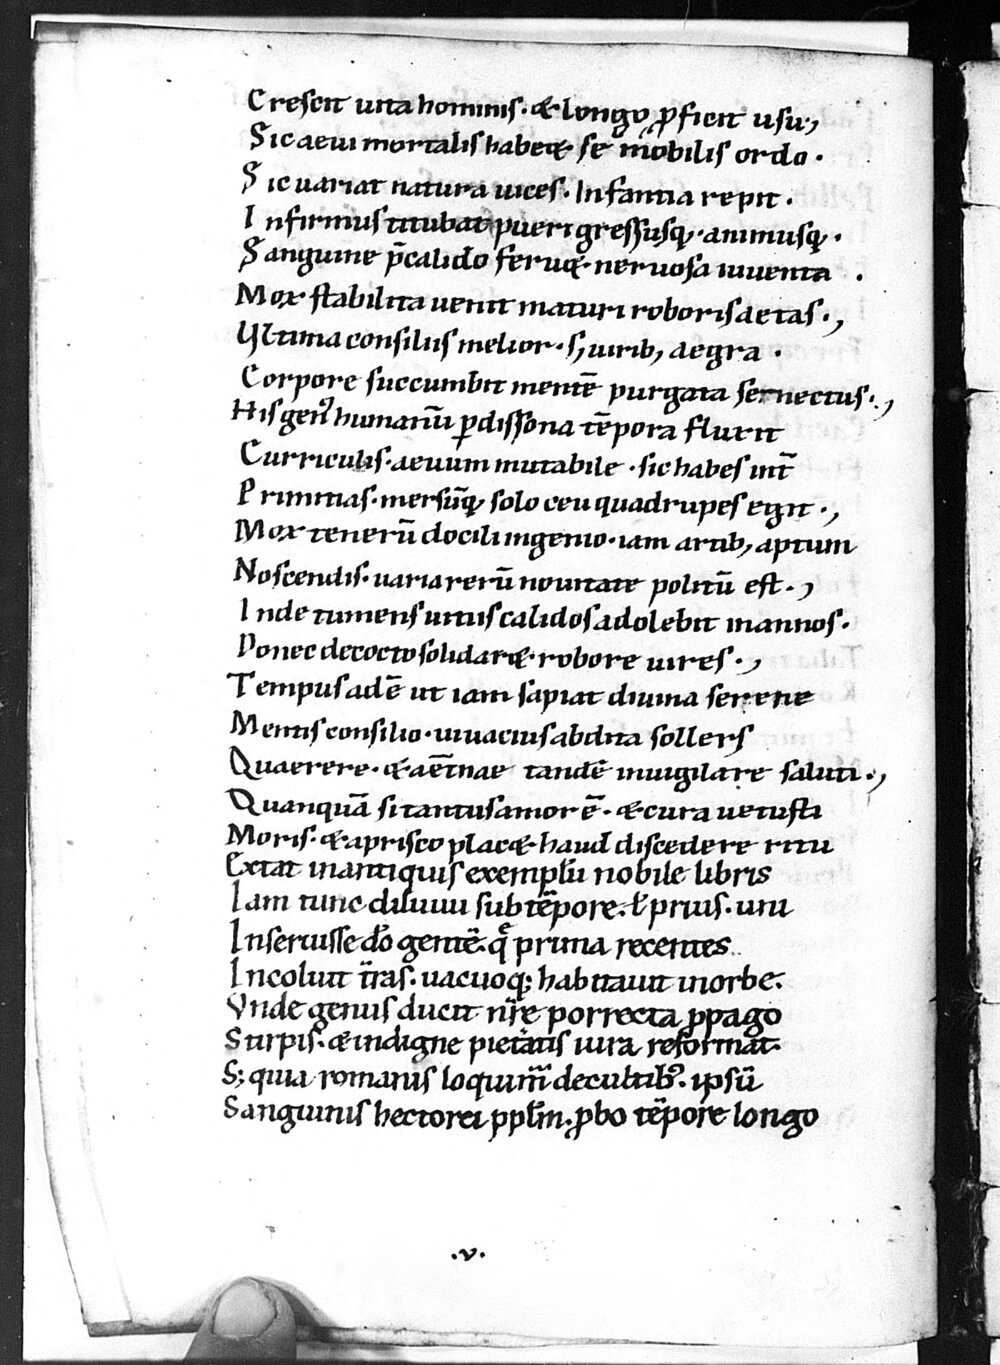 Crescit uita hominis· & longo ꝓficit usu·,
Sic aeui mortalis habet se mobilis ordo·
Sic uariat natura uices· Infantia repit·
Infirmus titubat pueri gressusq· animusq·
Sanguine p̄calido feru&· neruosa iuuenta·
Mox stabilita uenit maturi roboris aetas·,
Vltima consiliis melior· s; uirib; aegra·
Corpore succumbit mentē purgata senectus·,
His gen⁹ humanū ꝑ dissona tēpora fluxit
Curriculis· aeuum mutabile· sic habes int̄
Primitias· mersūq; solo ceu quadrupes egit·,
Mox tenerū docili ingenio· iam artib; aptum
Noscendis· uaria rerū nouitate politū est·,
Inde tumens uitiis calidos adolebit in annos·
Donec decocto solidar& robore uires·,
Tempus adē ut iam sapiat diuina serene
Mentis consilio· uiuacius abdita sollers
Quaerere· & aēt̄nae tandē inuigilare saluti·,
Quanquā si tantus amor ē· & cura uetusti
Moris· & a prisco plac& haud discedere ritu
Extat in antiquis exemplū nobile libris
Iam tunc diluuii sub tēpore· ł prius· uni
Inseruisse dō gentē· q̄ prima recentes
Incoluit t̄ras· uacuoq; habitauit in orbe·
Vnde genus ducit n̄re porrecta ꝓpago
Stirpis· & indigne pietatis iura reformat·
S; quia romanis loquim̄ de cultib⁹· ipsū
Sanguinis hectorei ppłm· ꝓbo tēpore longo
·v·